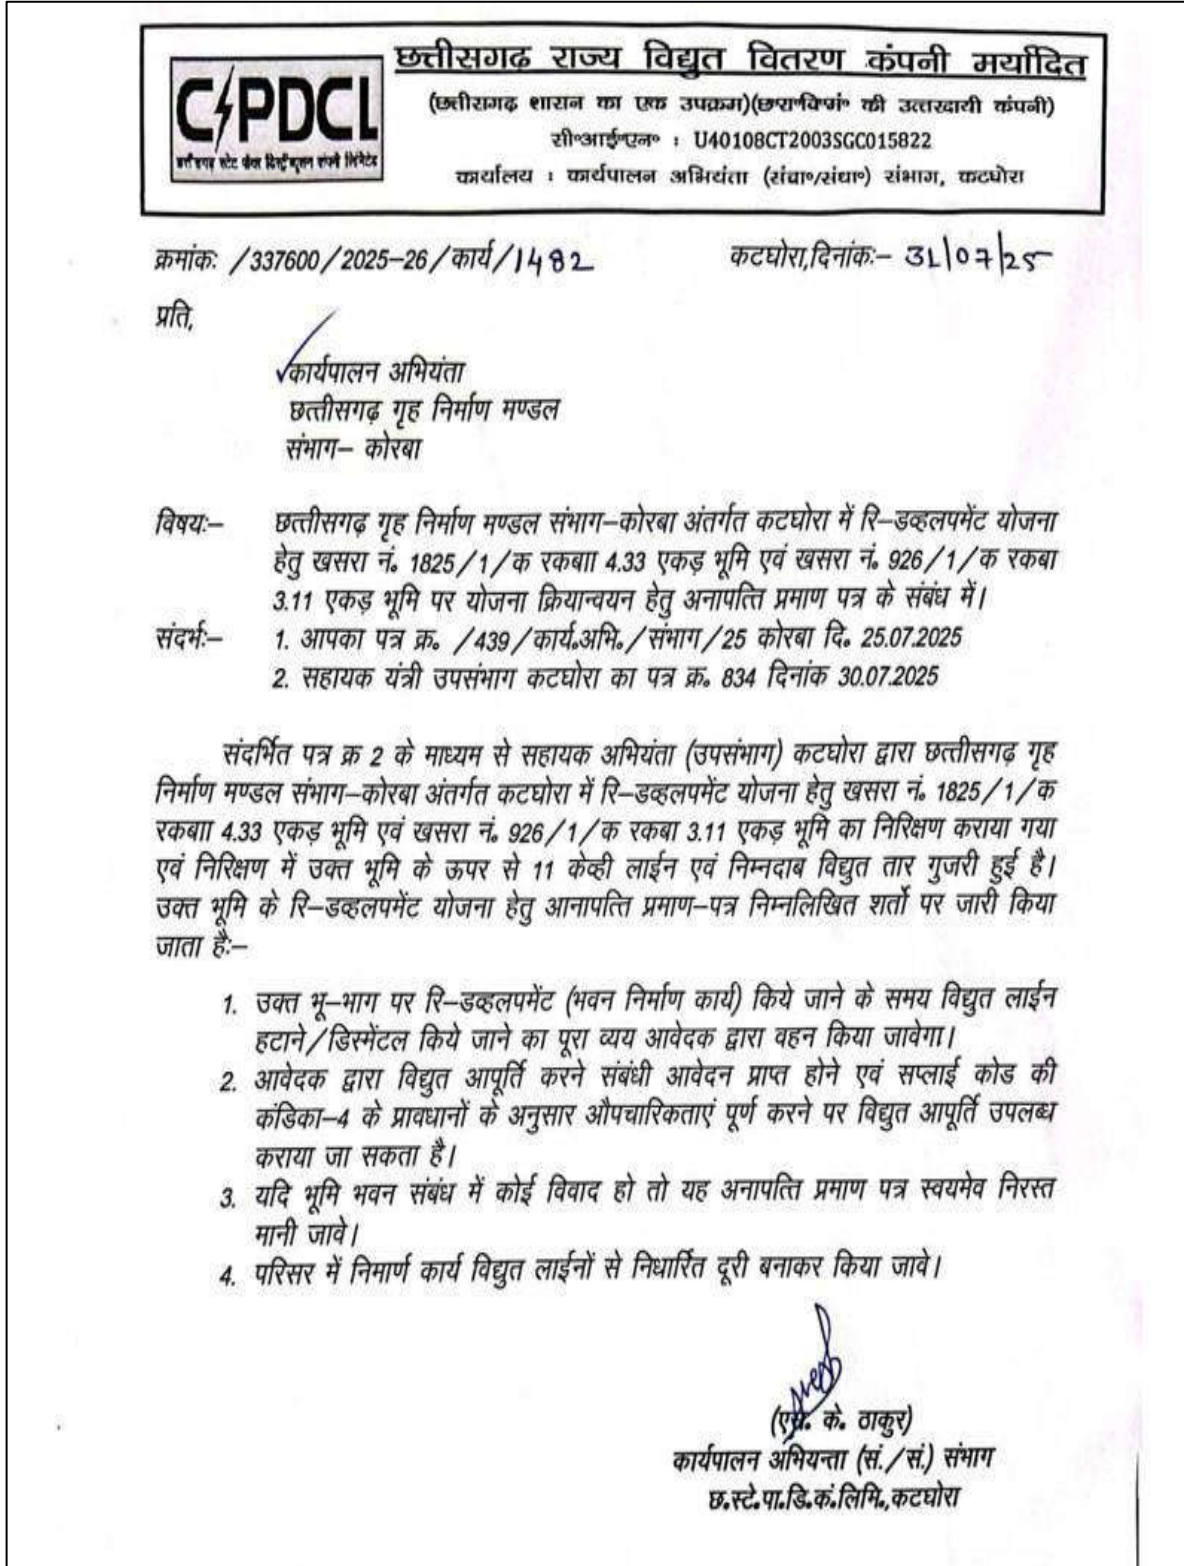 छत्तीसगढ़ राज्य विद्युत वितरण कंपनी मर्यादित
CSPDCL
छत्तीसगढ़ स्टेट पॉवर डिस्ट्रीब्यूशन कंपनी लिमिटेड
(छत्तीसगढ़ शासन का एक उपक्रम)(छ०रा०वि०मं० की उत्तरदायी कंपनी)
सी०आई०एन० : U40108CT2003SGC015822
कार्यालय : कार्यपालन अभियंता (संचा०/संधा०) संभाग, कटघोरा
क्रमांक: /337600/2025–26/कार्य/1482 कटघोरा,दिनांक:– 31/07/25
प्रति,
कार्यपालन अभियंता
छत्तीसगढ़ गृह निर्माण मण्डल
संभाग– कोरबा
विषय:– छत्तीसगढ़ गृह निर्माण मण्डल संभाग–कोरबा अंतर्गत कटघोरा में रि–डव्हलपमेंट योजना
हेतु खसरा नं. 1825/1/क रकबाा 4.33 एकड़ भूमि एवं खसरा नं. 926/1/क रकबा
3.11 एकड़ भूमि पर योजना क्रियान्वयन हेतु अनापत्ति प्रमाण पत्र के संबंध में।
संदर्भ:– 1. आपका पत्र क्र. /439/कार्य.अभि./संभाग/25 कोरबा दि. 25.07.2025
2. सहायक यंत्री उपसंभाग कटघोरा का पत्र क्र. 834 दिनांक 30.07.2025
संदर्भित पत्र क्र 2 के माध्यम से सहायक अभियंता (उपसंभाग) कटघोरा द्वारा छत्तीसगढ़ गृह
निर्माण मण्डल संभाग–कोरबा अंतर्गत कटघोरा में रि–डव्हलपमेंट योजना हेतु खसरा नं. 1825/1/क
रकबाा 4.33 एकड़ भूमि एवं खसरा नं. 926/1/क रकबा 3.11 एकड़ भूमि का निरिक्षण कराया गया
एवं निरिक्षण में उक्त भूमि के ऊपर से 11 केव्ही लाईन एवं निम्नदाब विद्युत तार गुजरी हुई है।
उक्त भूमि के रि–डव्हलपमेंट योजना हेतु आनापत्ति प्रमाण–पत्र निम्नलिखित शर्तो पर जारी किया
जाता है:–
1. उक्त भू–भाग पर रि–डव्हलपमेंट (भवन निर्माण कार्य) किये जाने के समय विद्युत लाईन
हटाने/डिस्मेंटल किये जाने का पूरा व्यय आवेदक द्वारा वहन किया जावेगा।
2. आवेदक द्वारा विद्युत आपूर्ति करने संबंधी आवेदन प्राप्त होने एवं सप्लाई कोड की
कंडिका–4 के प्रावधानों के अनुसार औपचारिकताएं पूर्ण करने पर विद्युत आपूर्ति उपलब्ध
कराया जा सकता है।
3. यदि भूमि भवन संबंध में कोई विवाद हो तो यह अनापत्ति प्रमाण पत्र स्वयमेव निरस्त
मानी जावे।
4. परिसर में निमार्ण कार्य विद्युत लाईनों से निधार्रित दूरी बनाकर किया जावे।
(एस. के. ठाकुर)
कार्यपालन अभियन्ता (सं./सं.) संभाग
छ.स्टे.पा.डि.कं.लिमि.,कटघोरा